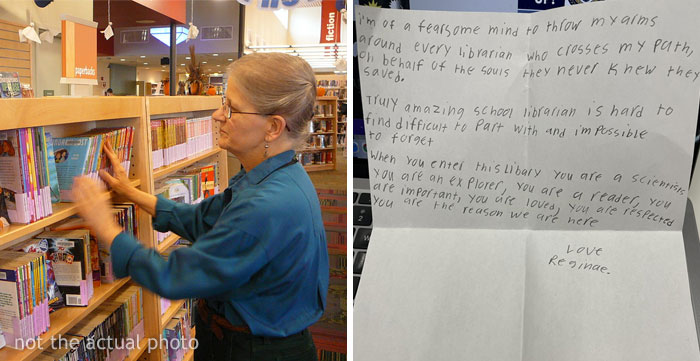 paperbacks
fiction
not the actual photo
i'm of a fearsome mind to throw my arms
around every librarian who crosses my path,
on behalf of the souls they never knew they
saved.
Truly amazing school librarian is hard to
find difficult to part with and impossible
to forget
When you enter this libary you are a scientists
you are an explorer, you are a reader, you
are important, you are loved, you are respected
you are the reason we are here
Love
Reginae.